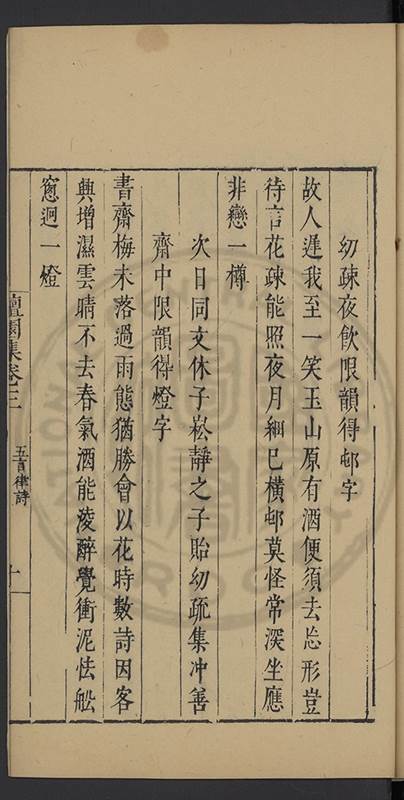 幼疎夜飲限韻得邨字
故人遲我至一笑玉山原有酒便須去忘形豈
待言花疎能照夜月細已橫邨莫怪常深坐應
非戀一樽
次日同文休子崧靜之子貽幼疏集冲善
齋中限韻得燈字
書齋梅未落過雨態猶勝會以花時數詩因客
興增濕雲晴不去春氣酒能淩醉覺衝泥怯舩
窻迥一燈
檀園集卷三
五言律詩
十一